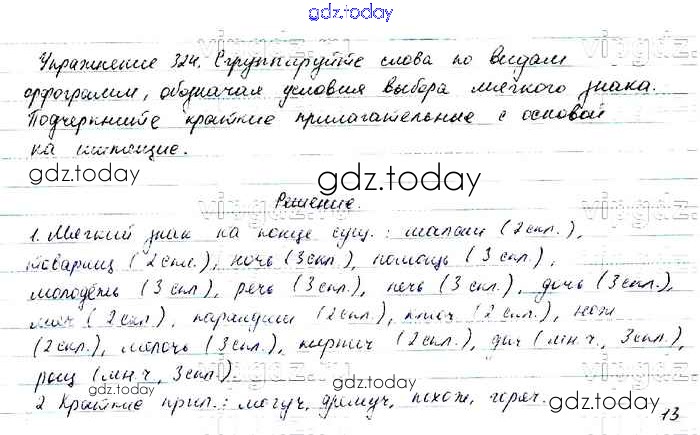 gdz.today
Упражнение 324. Сгруппируйте слова по видам
орфограмм, обозначая условия выбора мягкого знака.
Подчеркните краткие прилагательные с основой
на шипящие.
gdz.today
gdz.today
Решение.
1. Мягкий знак на конце сущ.: шалаш (2 скл.),
товарищ (2 скл.), ночь (3 скл.), помощь (3 скл.),
молодёжь (3 скл.), речь (3 скл.), печь (3 скл.), дичь (3 скл.),
мяч (2 скл.), карандаш (2 скл.), ключ (2 скл.), нож
(2 скл.), мелочь (3 скл.), кирпич (2 скл.), дач (мн.ч., 3 скл.),
рощ (мн.ч., 3 скл.)
gdz.today
2. Краткие прил.: могуч, дремуч, похож, горяч.
gdz.today
13